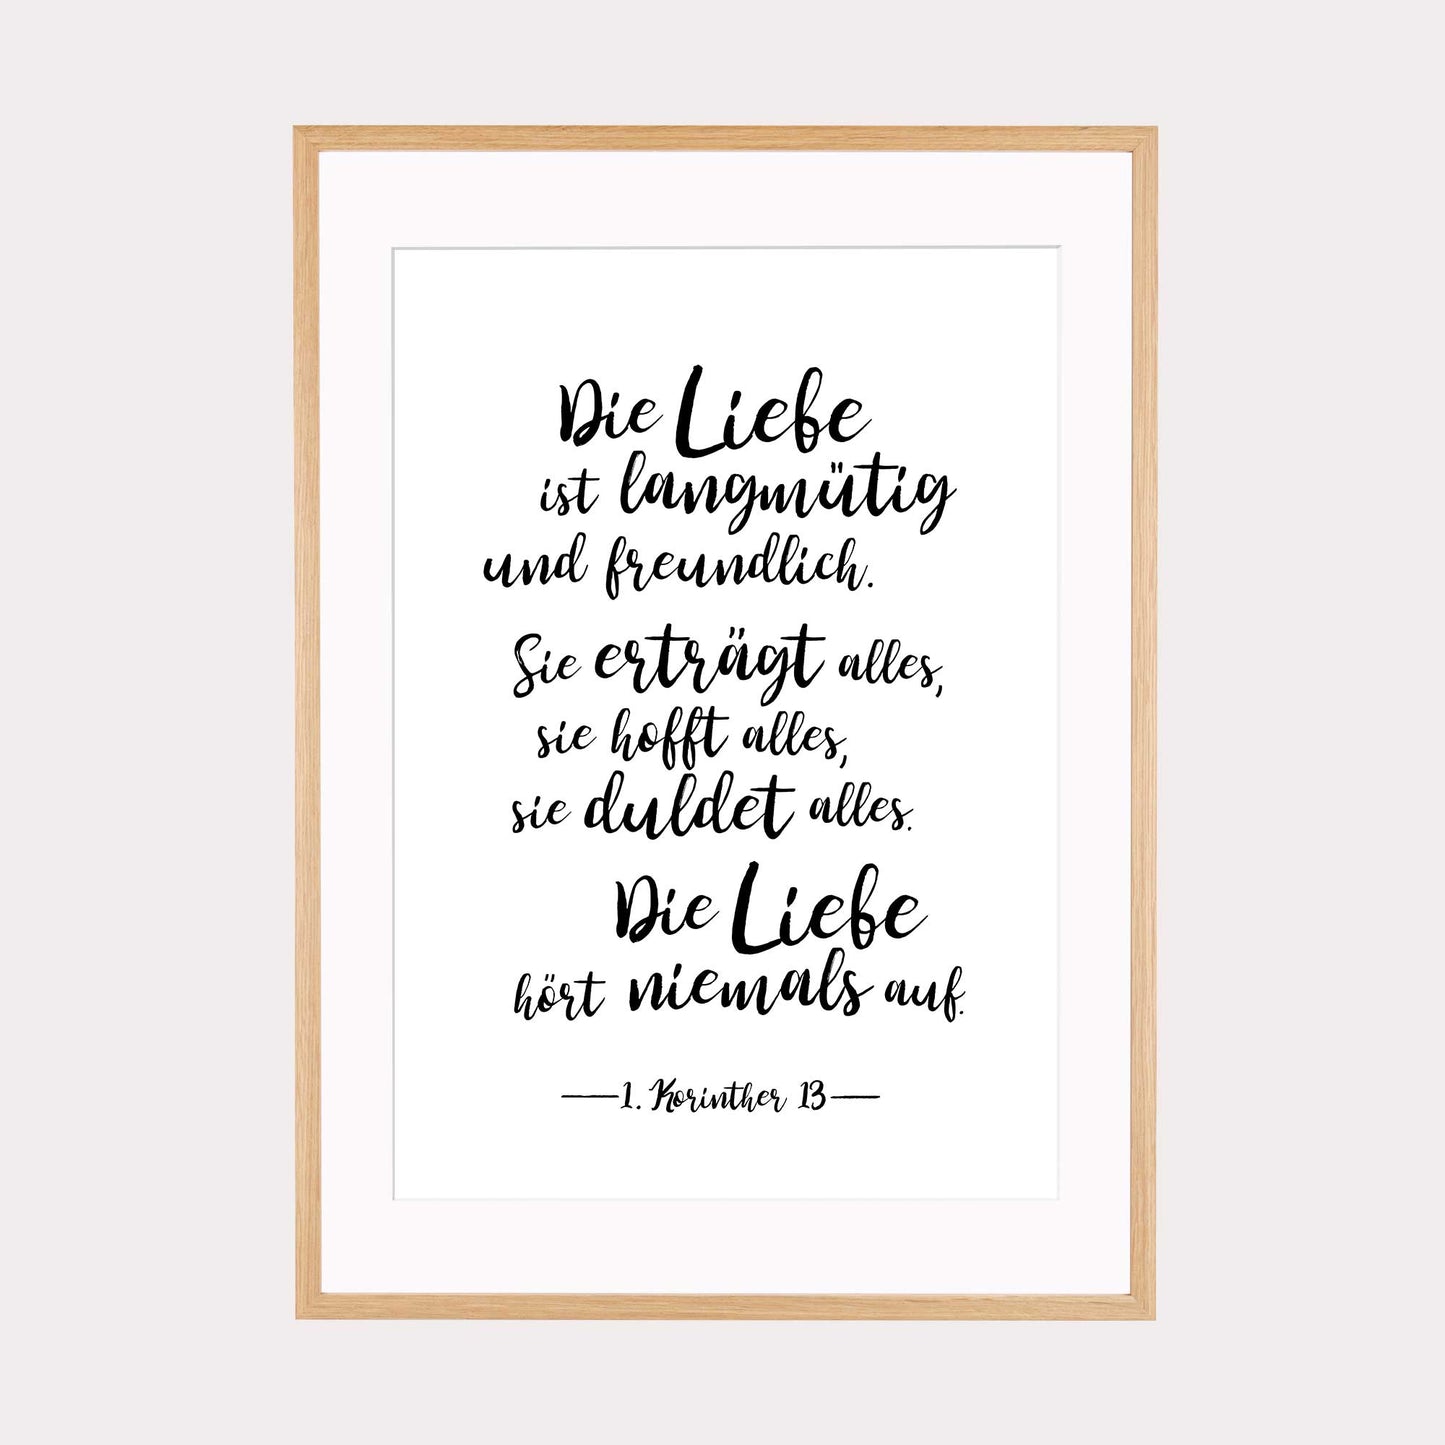 Die Liebe
ist langmütig
und freundlich.
Sie erträgt alles,
sie hofft alles,
sie duldet alles.
Die Liebe
hört niemals auf.
1. Korinther 13